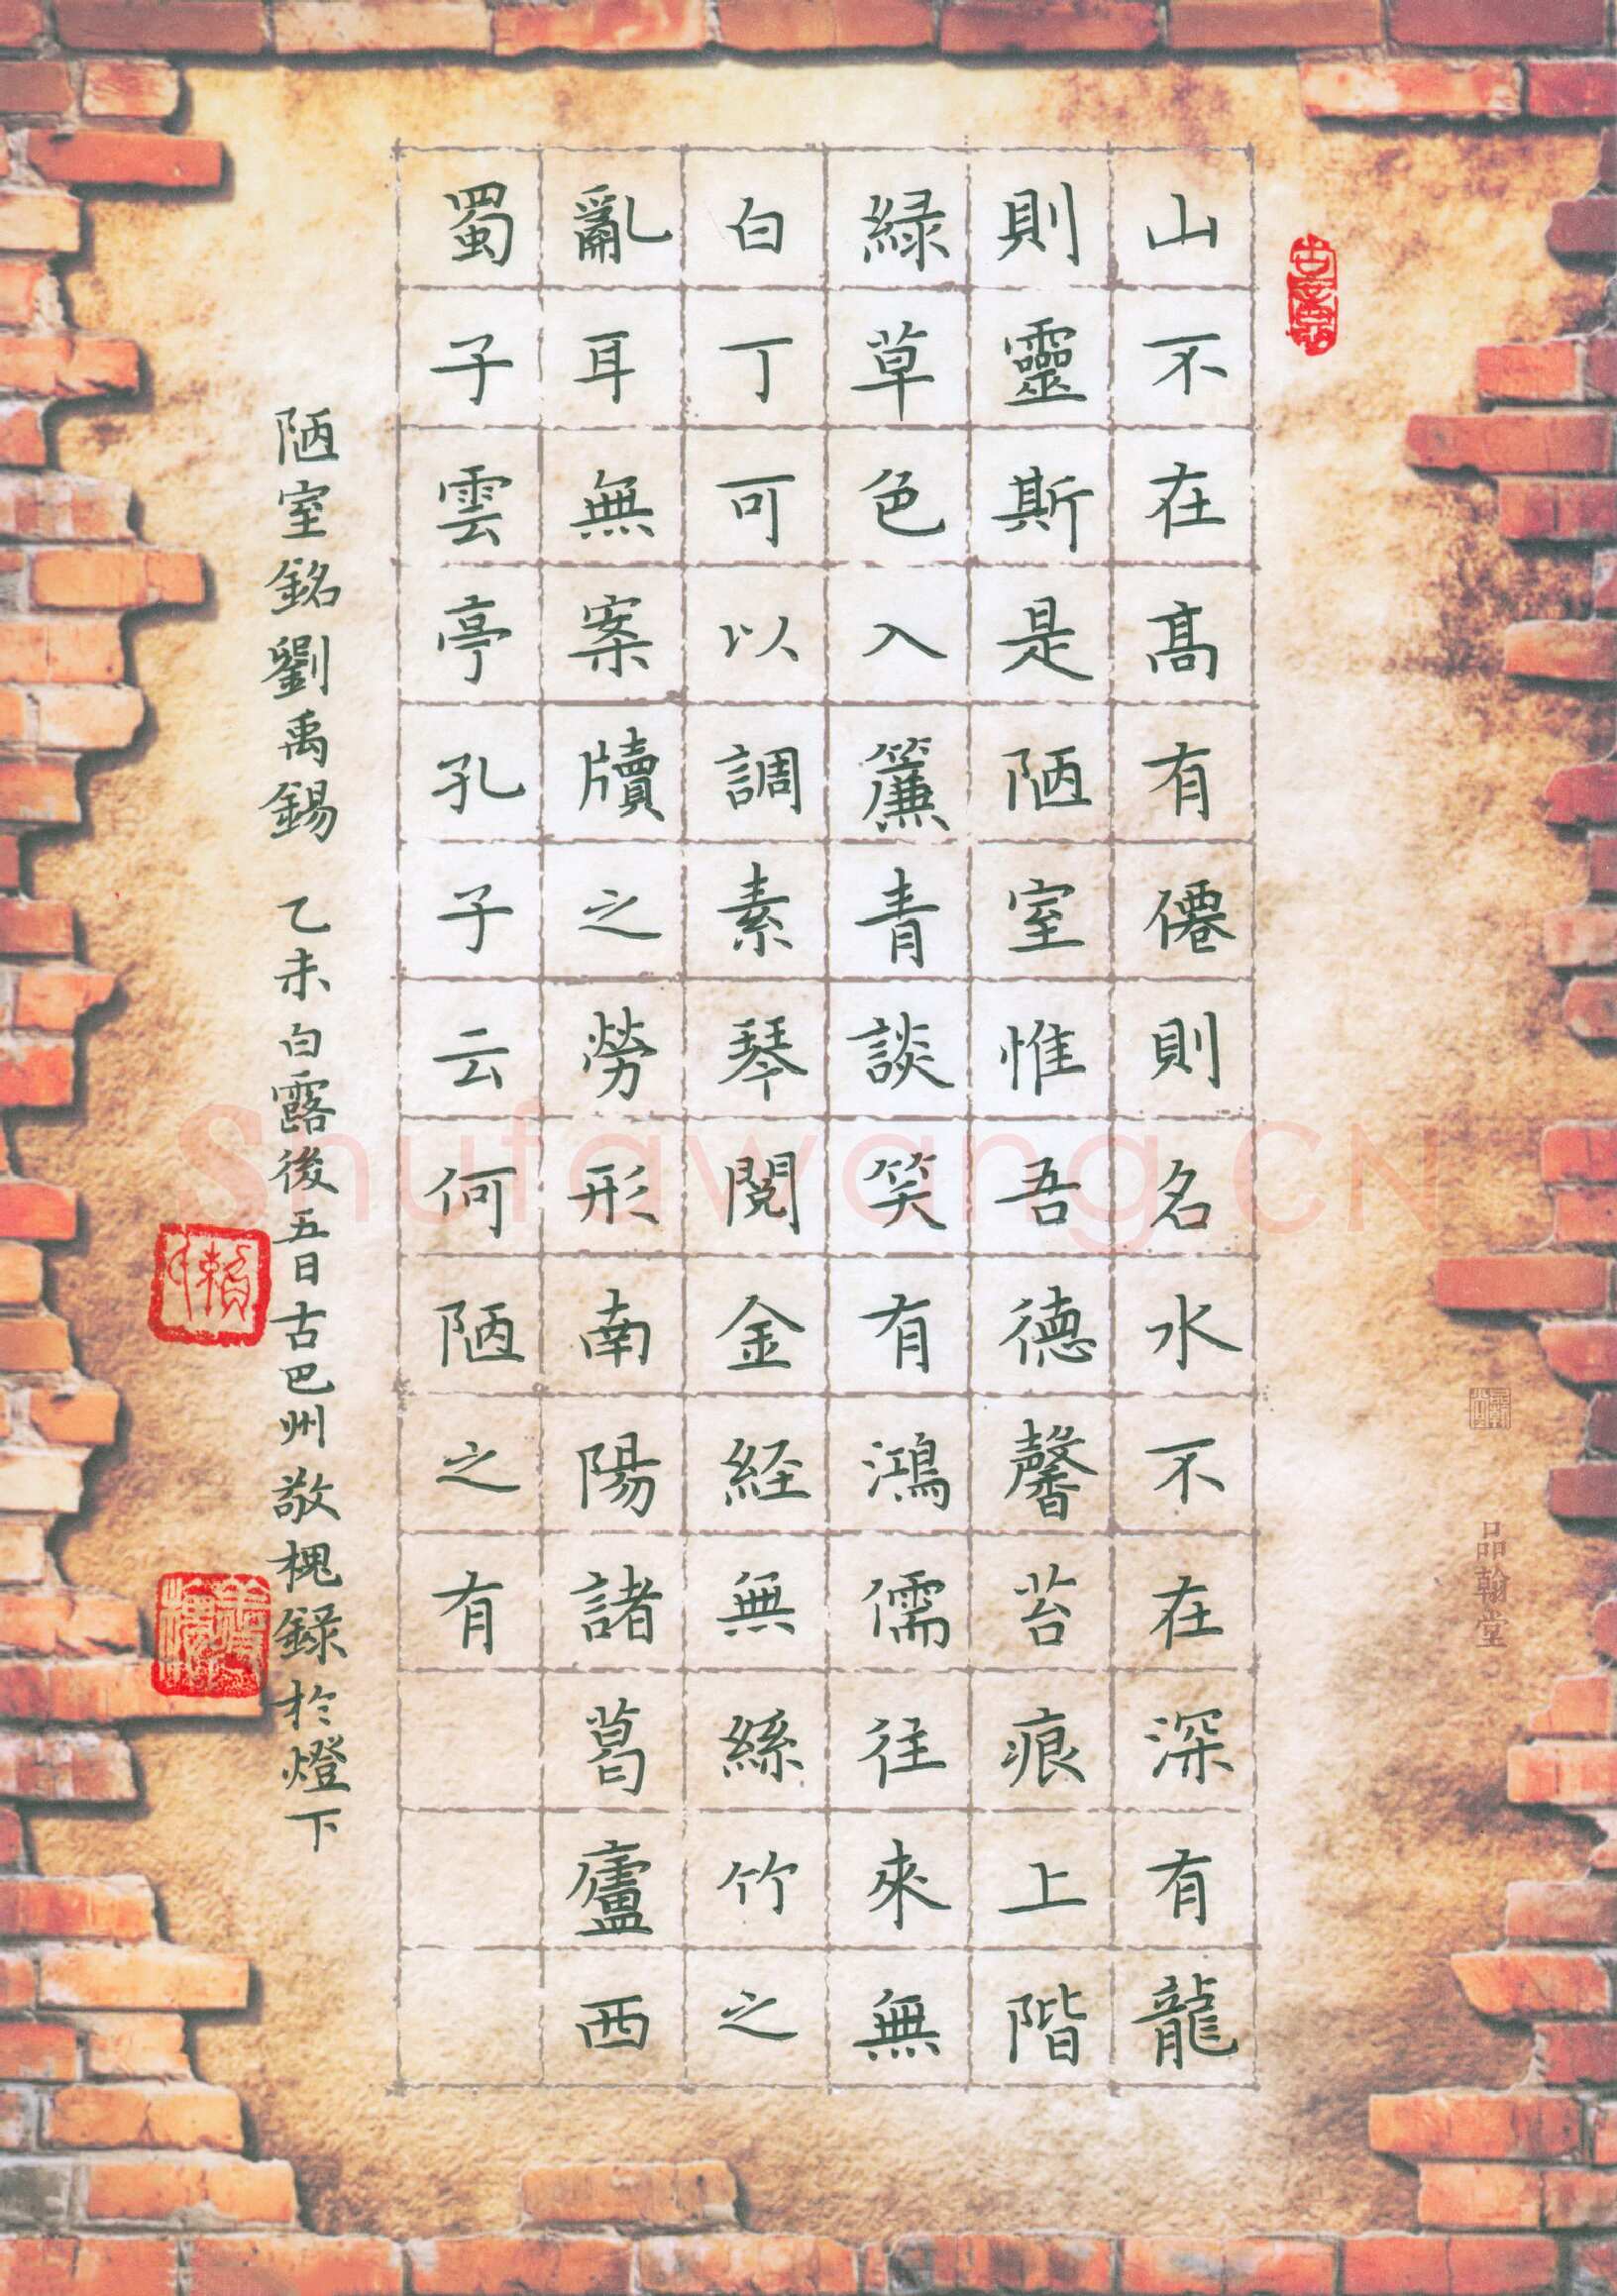 山不在髙有僊則名水不在深有龍
則靈斯是陋室惟吾德馨苔痕上階
緑草色入簾青談笑有鴻儒往來無
白丁可以調素琴閱金経無絲竹之
亂耳無案牘之勞形南陽諸葛廬西
蜀子雲亭孔子云何陋之有
陋室銘劉禹錫 乙未白露後五日古巴州敬槐録於燈下
品翰堂
Shufawang.CN